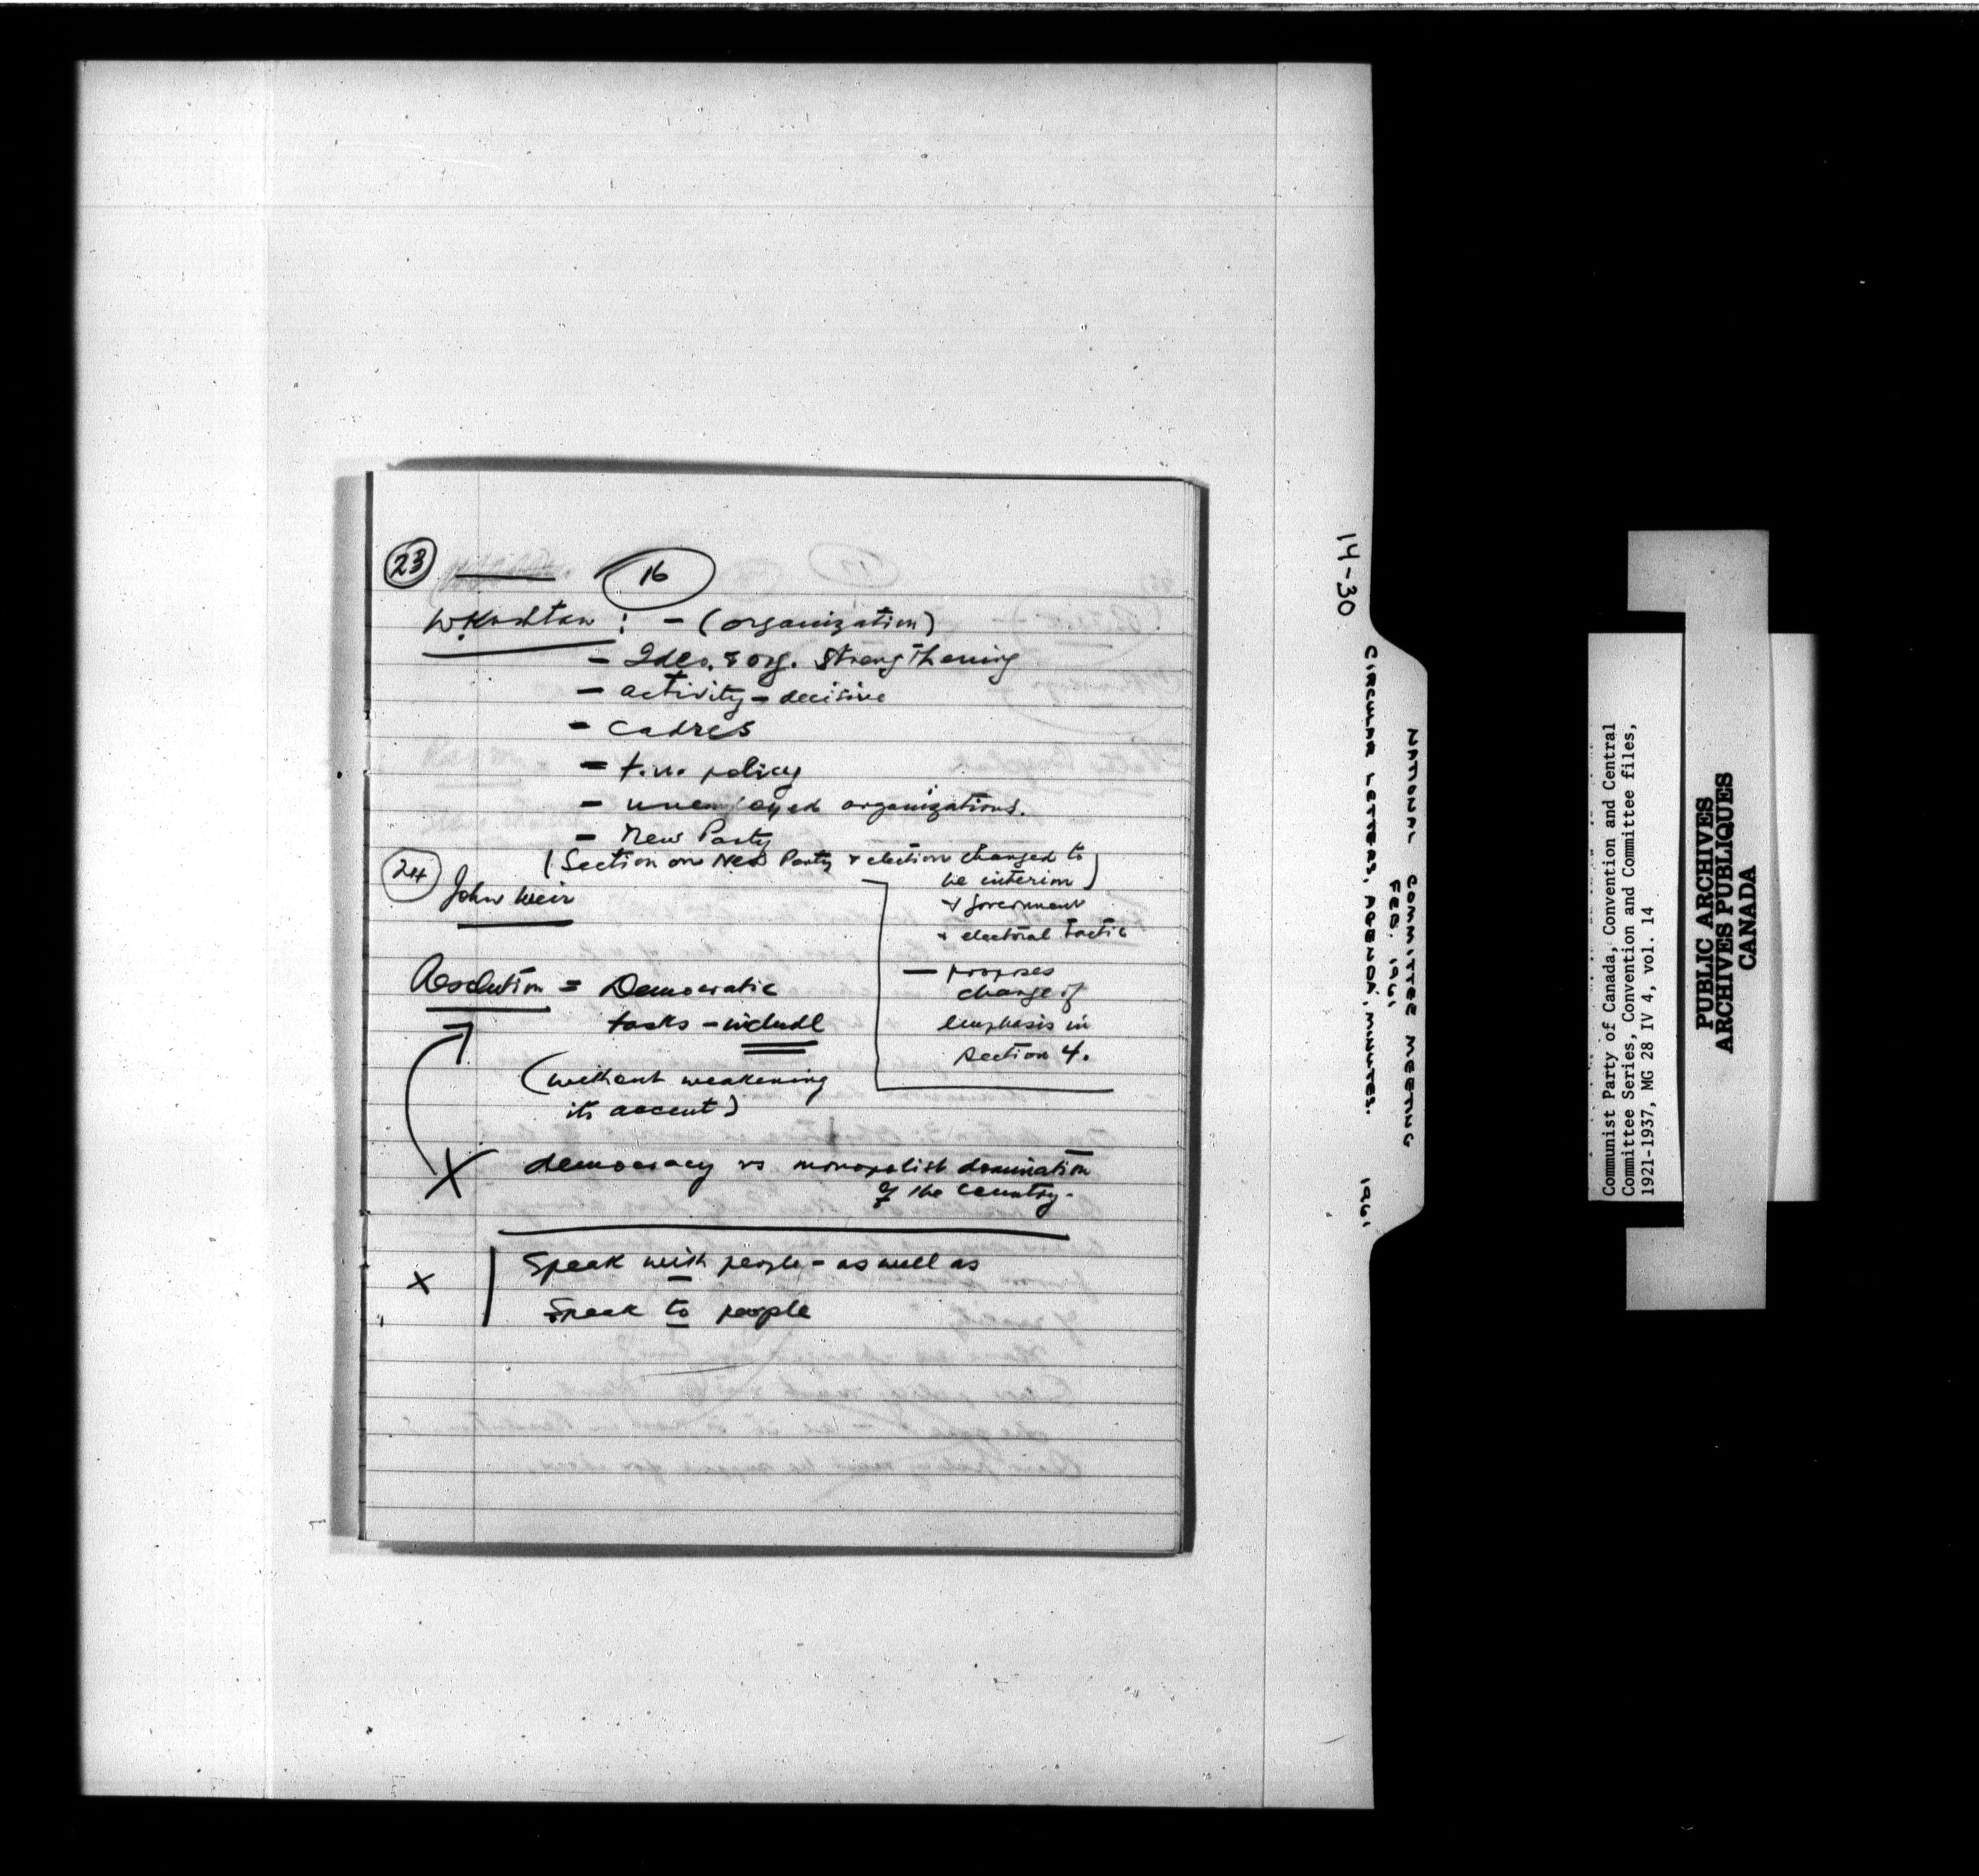 23
16
W. Kashtan : - (organization)
- Ideo. & org. strengthening
- activity - decisive
- cadres
- t.u. policy
- unemployed organizations.
- New Party
(Section on New Party & election changed to
be interim)
+ government
+ electoral tactic
- proposes
change of
emphasis in
section 4.
24
John Weir
Resolution = Democratic
tasks - include
(without weakening
its accent)
X democracy vs monopolist domination
of the country.
x Speak with people - as well as
Speak to people
14-30 CIRCULAR LETTERS, AGENDA, MINUTES. 1961
NATIONAL COMMITTEE MEETING
FEB. 1961,
Communist Party of Canada, Convention and Central
Committee Series, Convention and Committee files,
1921-1937, MG 28 IV 4, vol. 14
PUBLIC ARCHIVES
ARCHIVES PUBLIQUES
CANADA